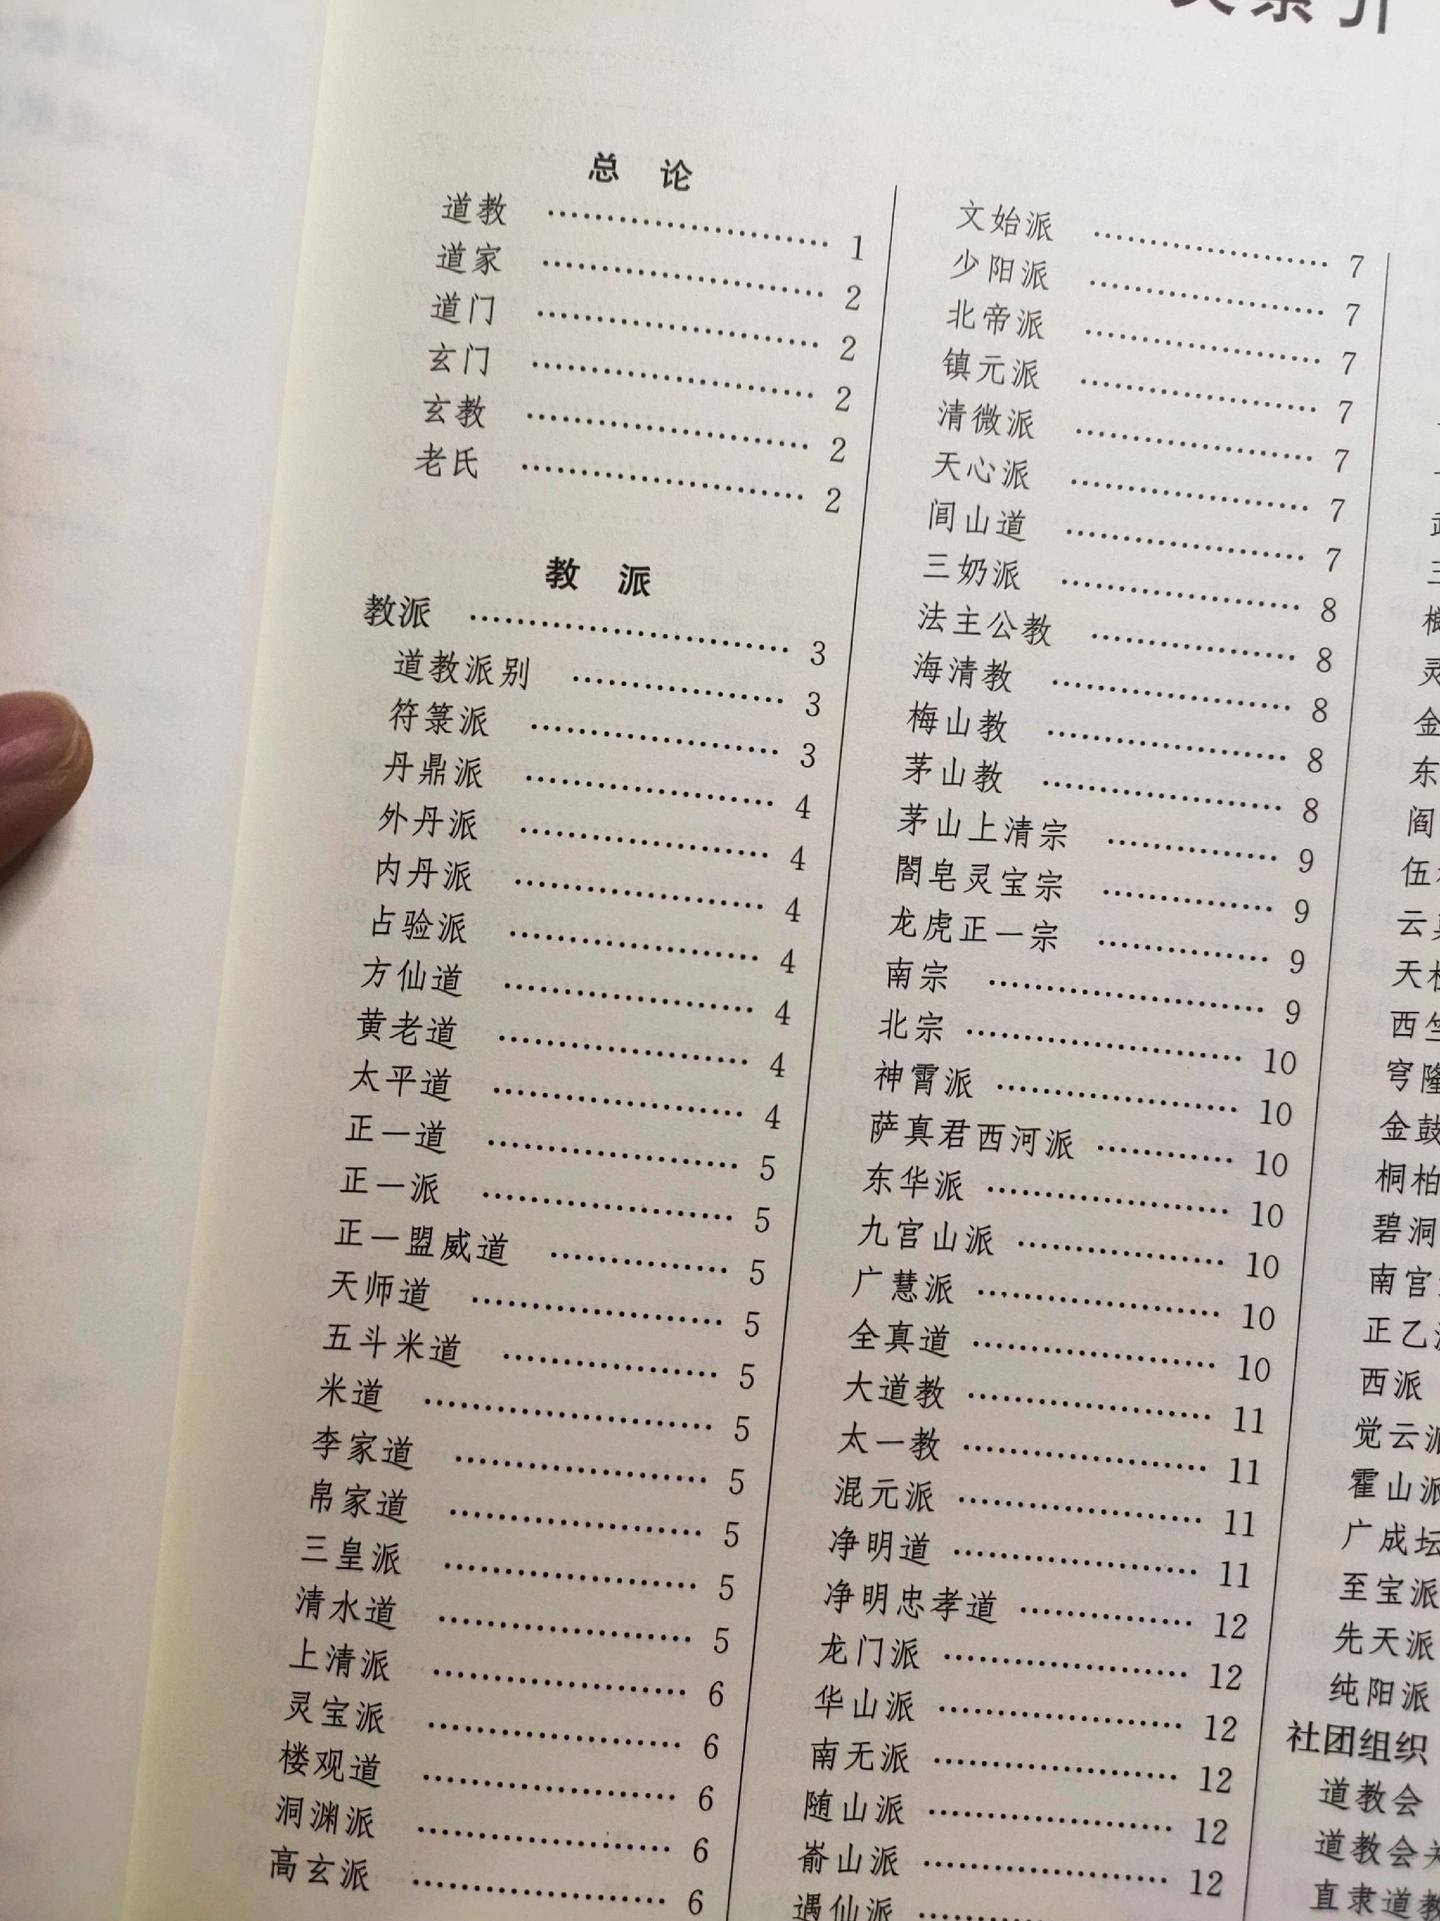 类索引
总 论
道教 …… 1
道家 …… 2
道门 …… 2
玄门 …… 2
玄教 …… 2
老氏 …… 2
教 派
教派 …… 3
道教派别 …… 3
符箓派 …… 3
丹鼎派 …… 4
外丹派 …… 4
内丹派 …… 4
占验派 …… 4
方仙道 …… 4
黄老道 …… 4
太平道 …… 4
正一道 …… 5
正一派 …… 5
正一盟威道 …… 5
天师道 …… 5
五斗米道 …… 5
米道 …… 5
李家道 …… 5
帛家道 …… 5
三皇派 …… 5
清水道 …… 5
上清派 …… 6
灵宝派 …… 6
楼观道 …… 6
洞渊派 …… 6
高玄派 …… 6
文始派 …… 7
少阳派 …… 7
北帝派 …… 7
镇元派 …… 7
清微派 …… 7
天心派 …… 7
闾山道 …… 7
三奶派 …… 8
法主公教 …… 8
海清教 …… 8
梅山教 …… 8
茅山教 …… 8
茅山上清宗 …… 9
閤皂灵宝宗 …… 9
龙虎正一宗 …… 9
南宗 …… 9
北宗 …… 10
神霄派 …… 10
萨真君西河派 …… 10
东华派 …… 10
九宫山派 …… 10
广慧派 …… 10
全真道 …… 10
大道教 …… 11
太一教 …… 11
混元派 …… 11
净明道 …… 11
净明忠孝道 …… 12
龙门派 …… 12
华山派 …… 12
南无派 …… 12
随山派 …… 12
嵛山派 …… 12
遇仙派 ……
灵
金
东
阎
伍
云
天
西竺
穹隆
金鼓
桐柏
碧洞
南宫
正乙
西派
觉云派
霍山派
广成坛
至宝派
先天派
纯阳派
社团组织
道教会
道教会
直隶道教